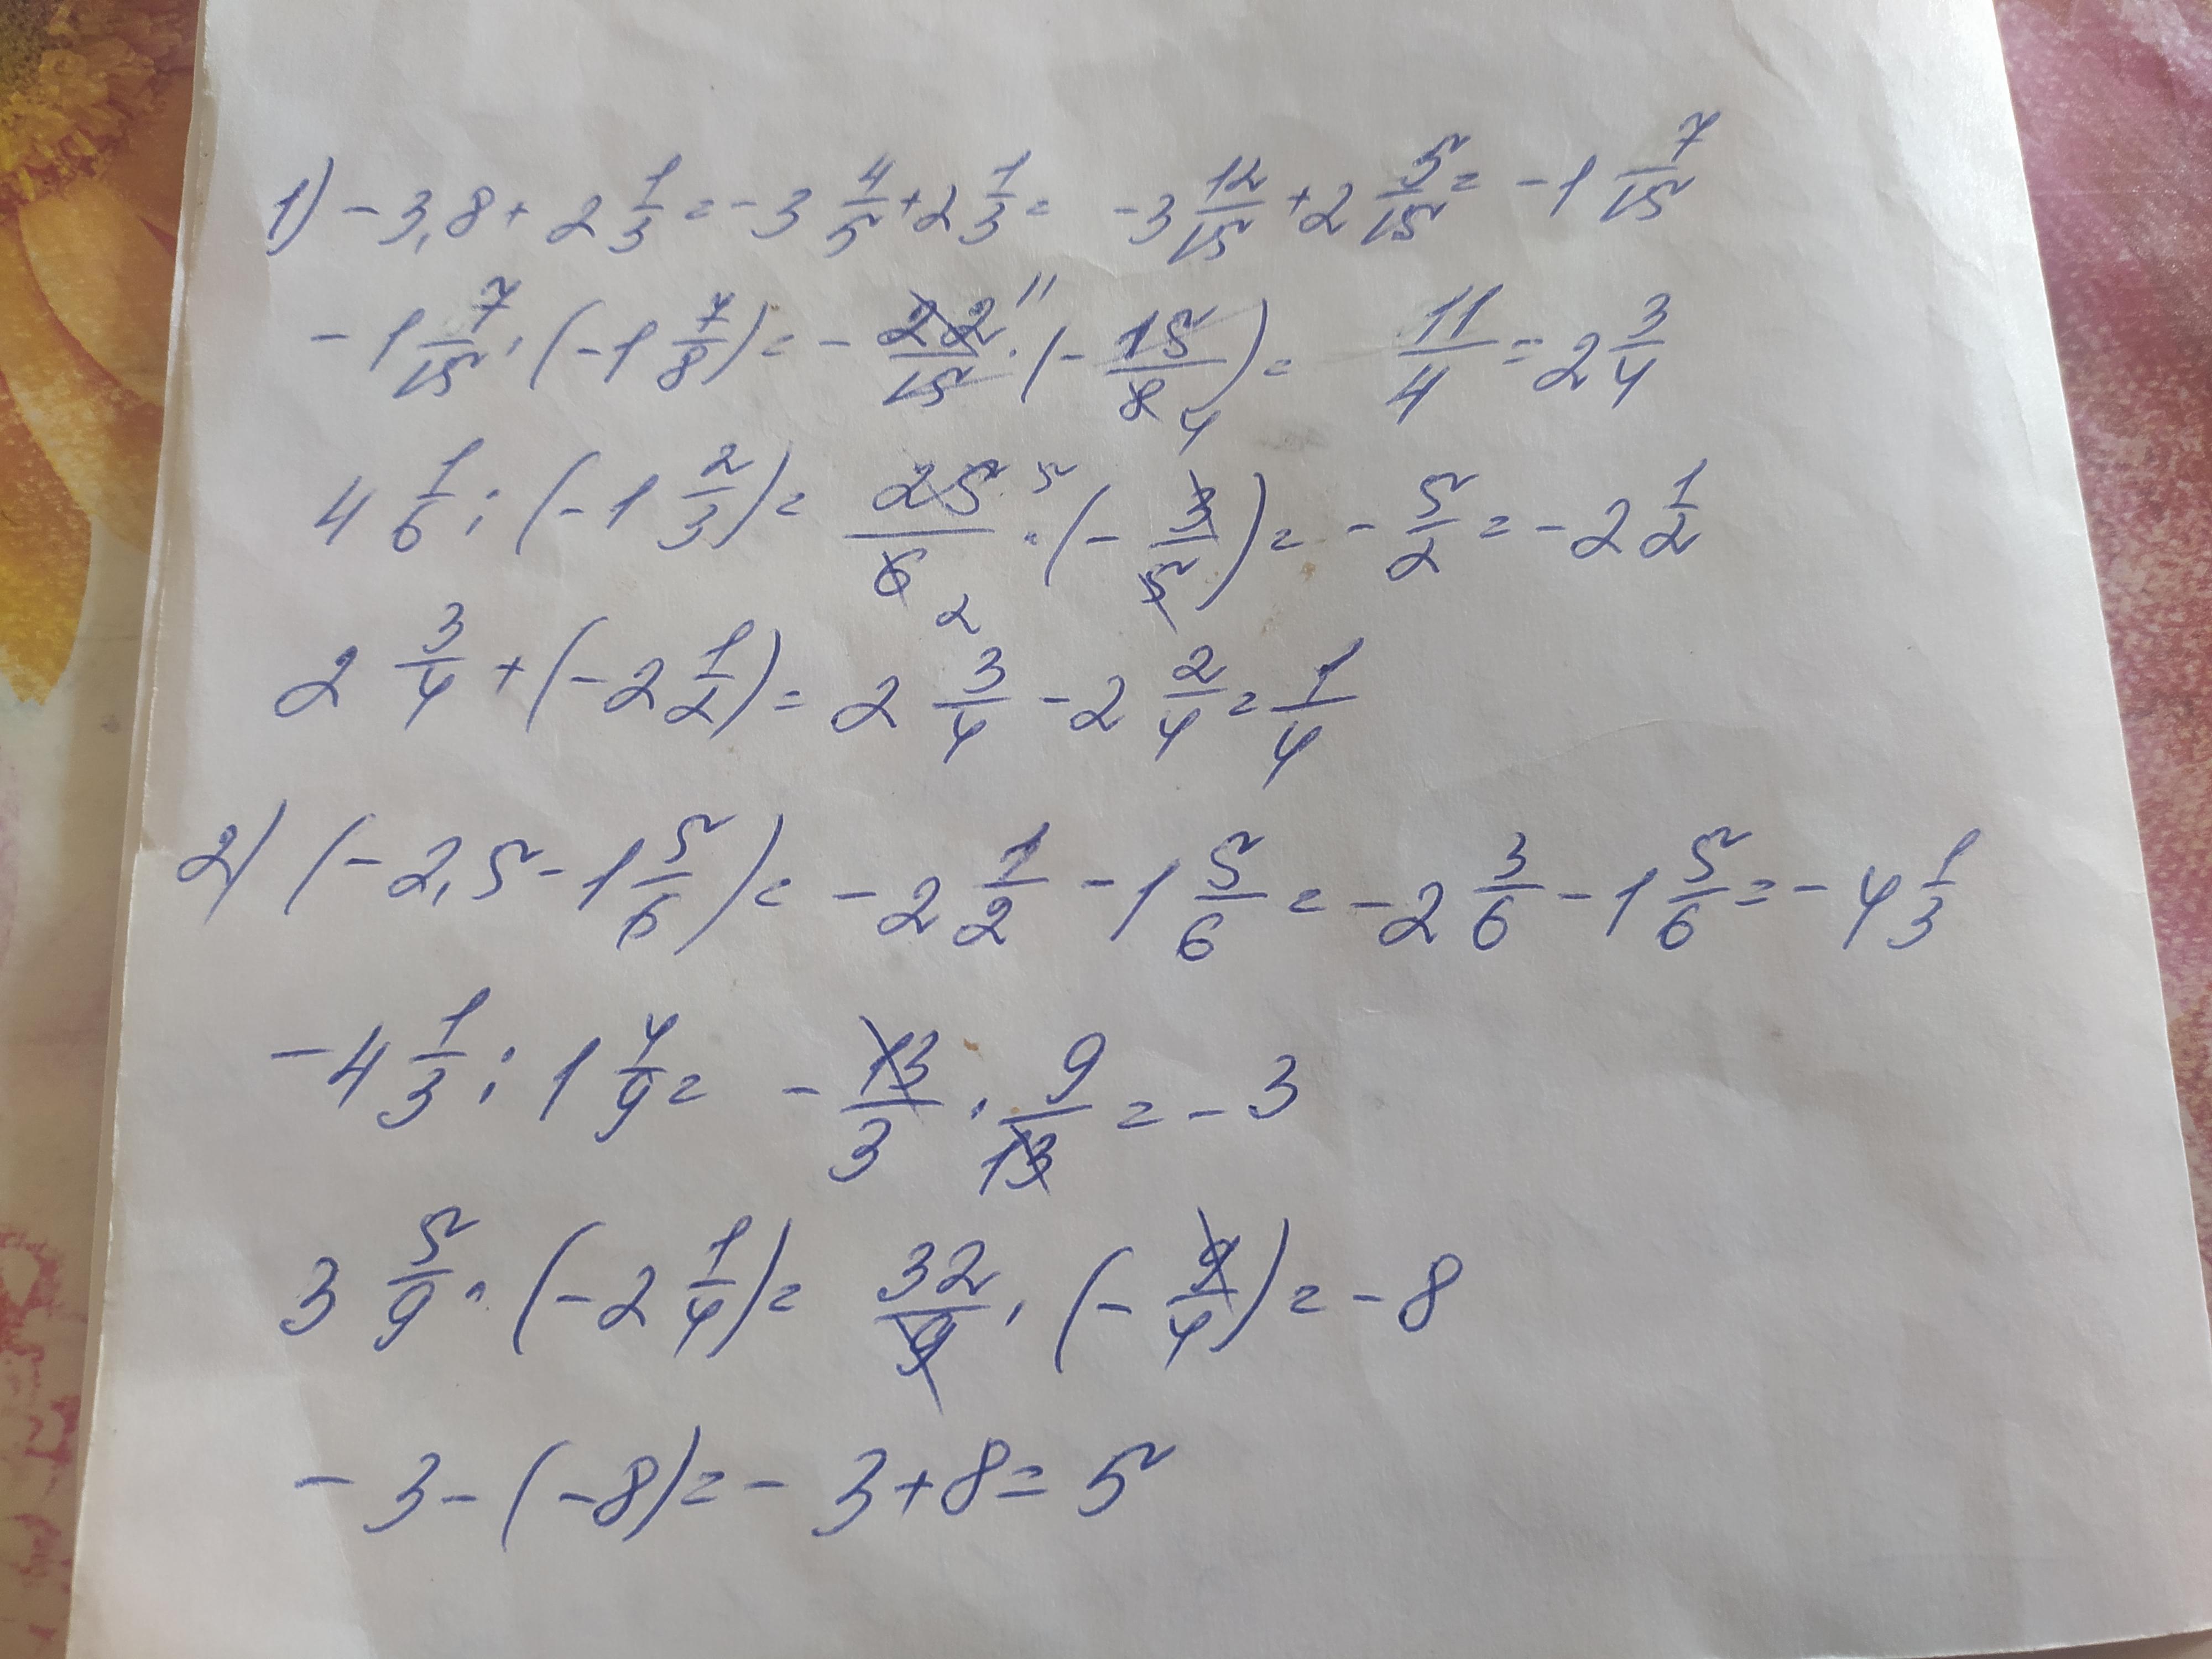 1) -3,8 + 2 1/3 = -3 4/5 + 2 1/3 = -3 12/15 + 2 5/15 = -1 7/15
-1 7/15 · (-1 7/8) = - 22/15 11 · (- 15/8 4) = 11/4 = 2 3/4
4 1/6 : (-1 2/3) = 25/6 5 2 · (- 3/5) = - 5/2 = -2 1/2
2 3/4 + (-2 1/2) = 2 3/4 - 2 2/4 = 1/4
2) (-2,5 - 1 5/6) = -2 1/2 - 1 5/6 = -2 3/6 - 1 5/6 = -4 1/3
-4 1/3 : 1 4/9 = - 13/3 · 9/13 = -3
3 5/9 · (-2 1/4) = 32/9 · (- 9/4) = -8
-3 - (-8) = -3 + 8 = 5